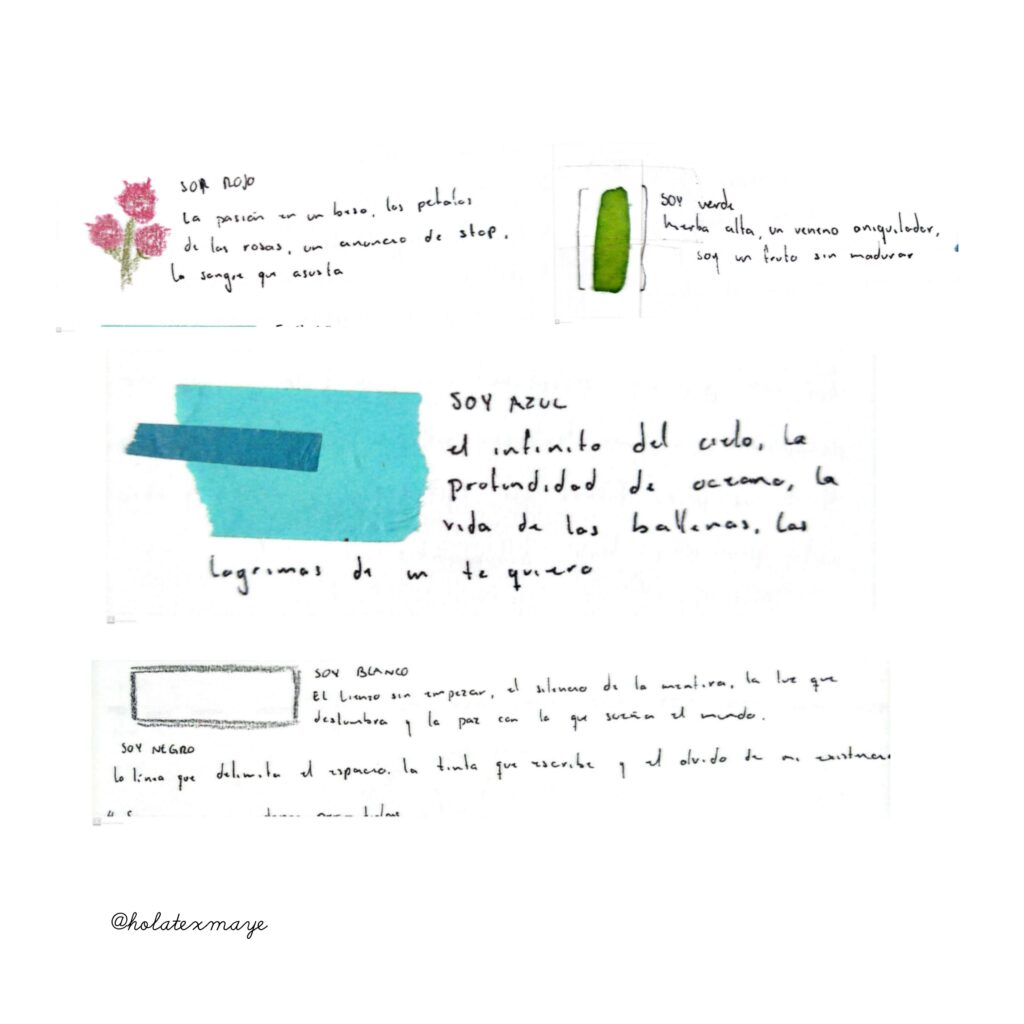 SOY ROJO
La pasión en un beso, los petalos
de las rosas, un anuncio de stop,
la sangre que asusta
SOY verde
hierba alta, un veneno aniquilador,
soy un fruto sin madurar
SOY AZUL
el infinito del cielo, la
profundidad de oceano, la
vida de las ballenas, las
lagrimas de un te quiero
SOY BLANCO
EL Lienzo sin empezar, el silencio de la mentira, la luz que
deslumbra y la paz con la que sueña el mundo.
SOY NEGRO
La linea que delimita el espacio, la tinta que escribe y el olvido de mi existencia
@holatexmaye